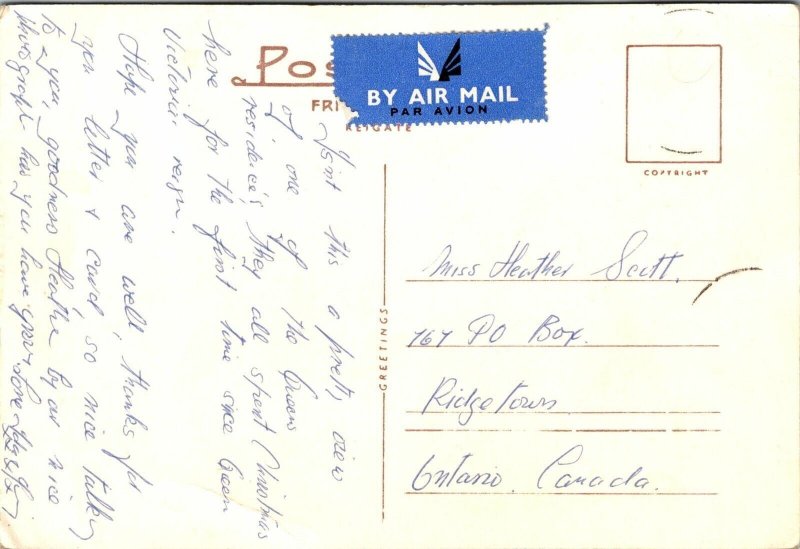 Pos
FRI
REIGATE
BY AIR MAIL
PAR AVION
COPYRIGHT
GREETINGS
Isint this a pretty view
of one of the Queens
residence's, they all spent Christmas
here for the first time since Queen
Victorias reign.
Hope you are well, thanks for
you letter & card so nice talking
to you, goodness Heather by as nice
photograph has you have your
love
Miss Heather Scott.
767 PO Box.
Ridgetown
Ontario. Canada.